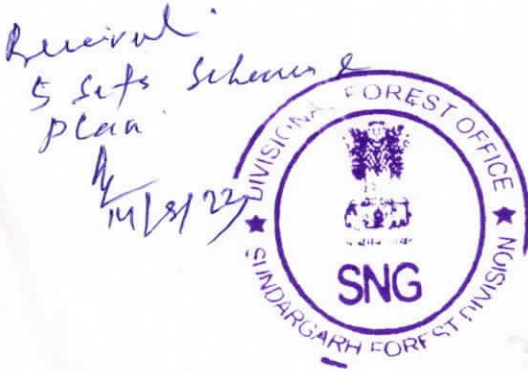 Received.
5 Sets Scheme &
Plan
DIVISIONAL FOREST OFFICE
SNG
★ SUNDARGARH FOREST DIVISION ★